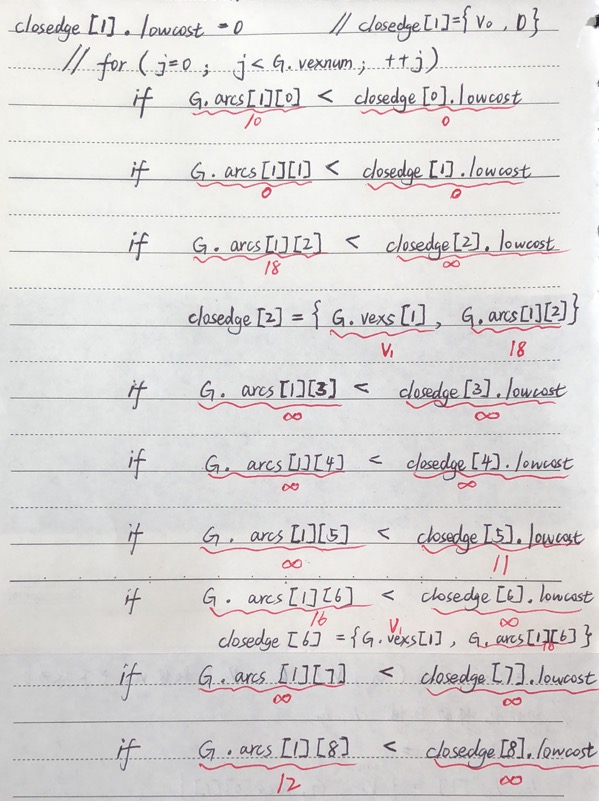 closedge [1] . lowcost = 0 // closedge [1]={V₀, 0}
// for ( j=0 ; j < G.vexnum ; ++j )
if G.arcs[1][0] < closedge [0].lowcost
10 0
if G.arcs[1][1] < closedge [1].lowcost
0 0
if G. arcs[1][2] < closedge[2].lowcost
18 ∞
closedge [2] = { G.vexs[1] , G.arcs[1][2]}
V₁ 18
if G. arcs [1][3] < closedge [3].lowcost
∞ ∞
if G. arcs [1][4] < closedge [4].lowcost
∞ ∞
if G. arcs [1][5] < closedge [5].lowcost
∞ 11
if G. arcs [1][6] < closedge [6].lowcost
16 ∞
V₁
closedge [6] = {G.vexs[1] , G.arcs[1][6]}
16
if G. arcs [1][7] < closedge [7].lowcost
∞ ∞
if G. arcs [1][8] < closedge [8].lowcost
12 ∞